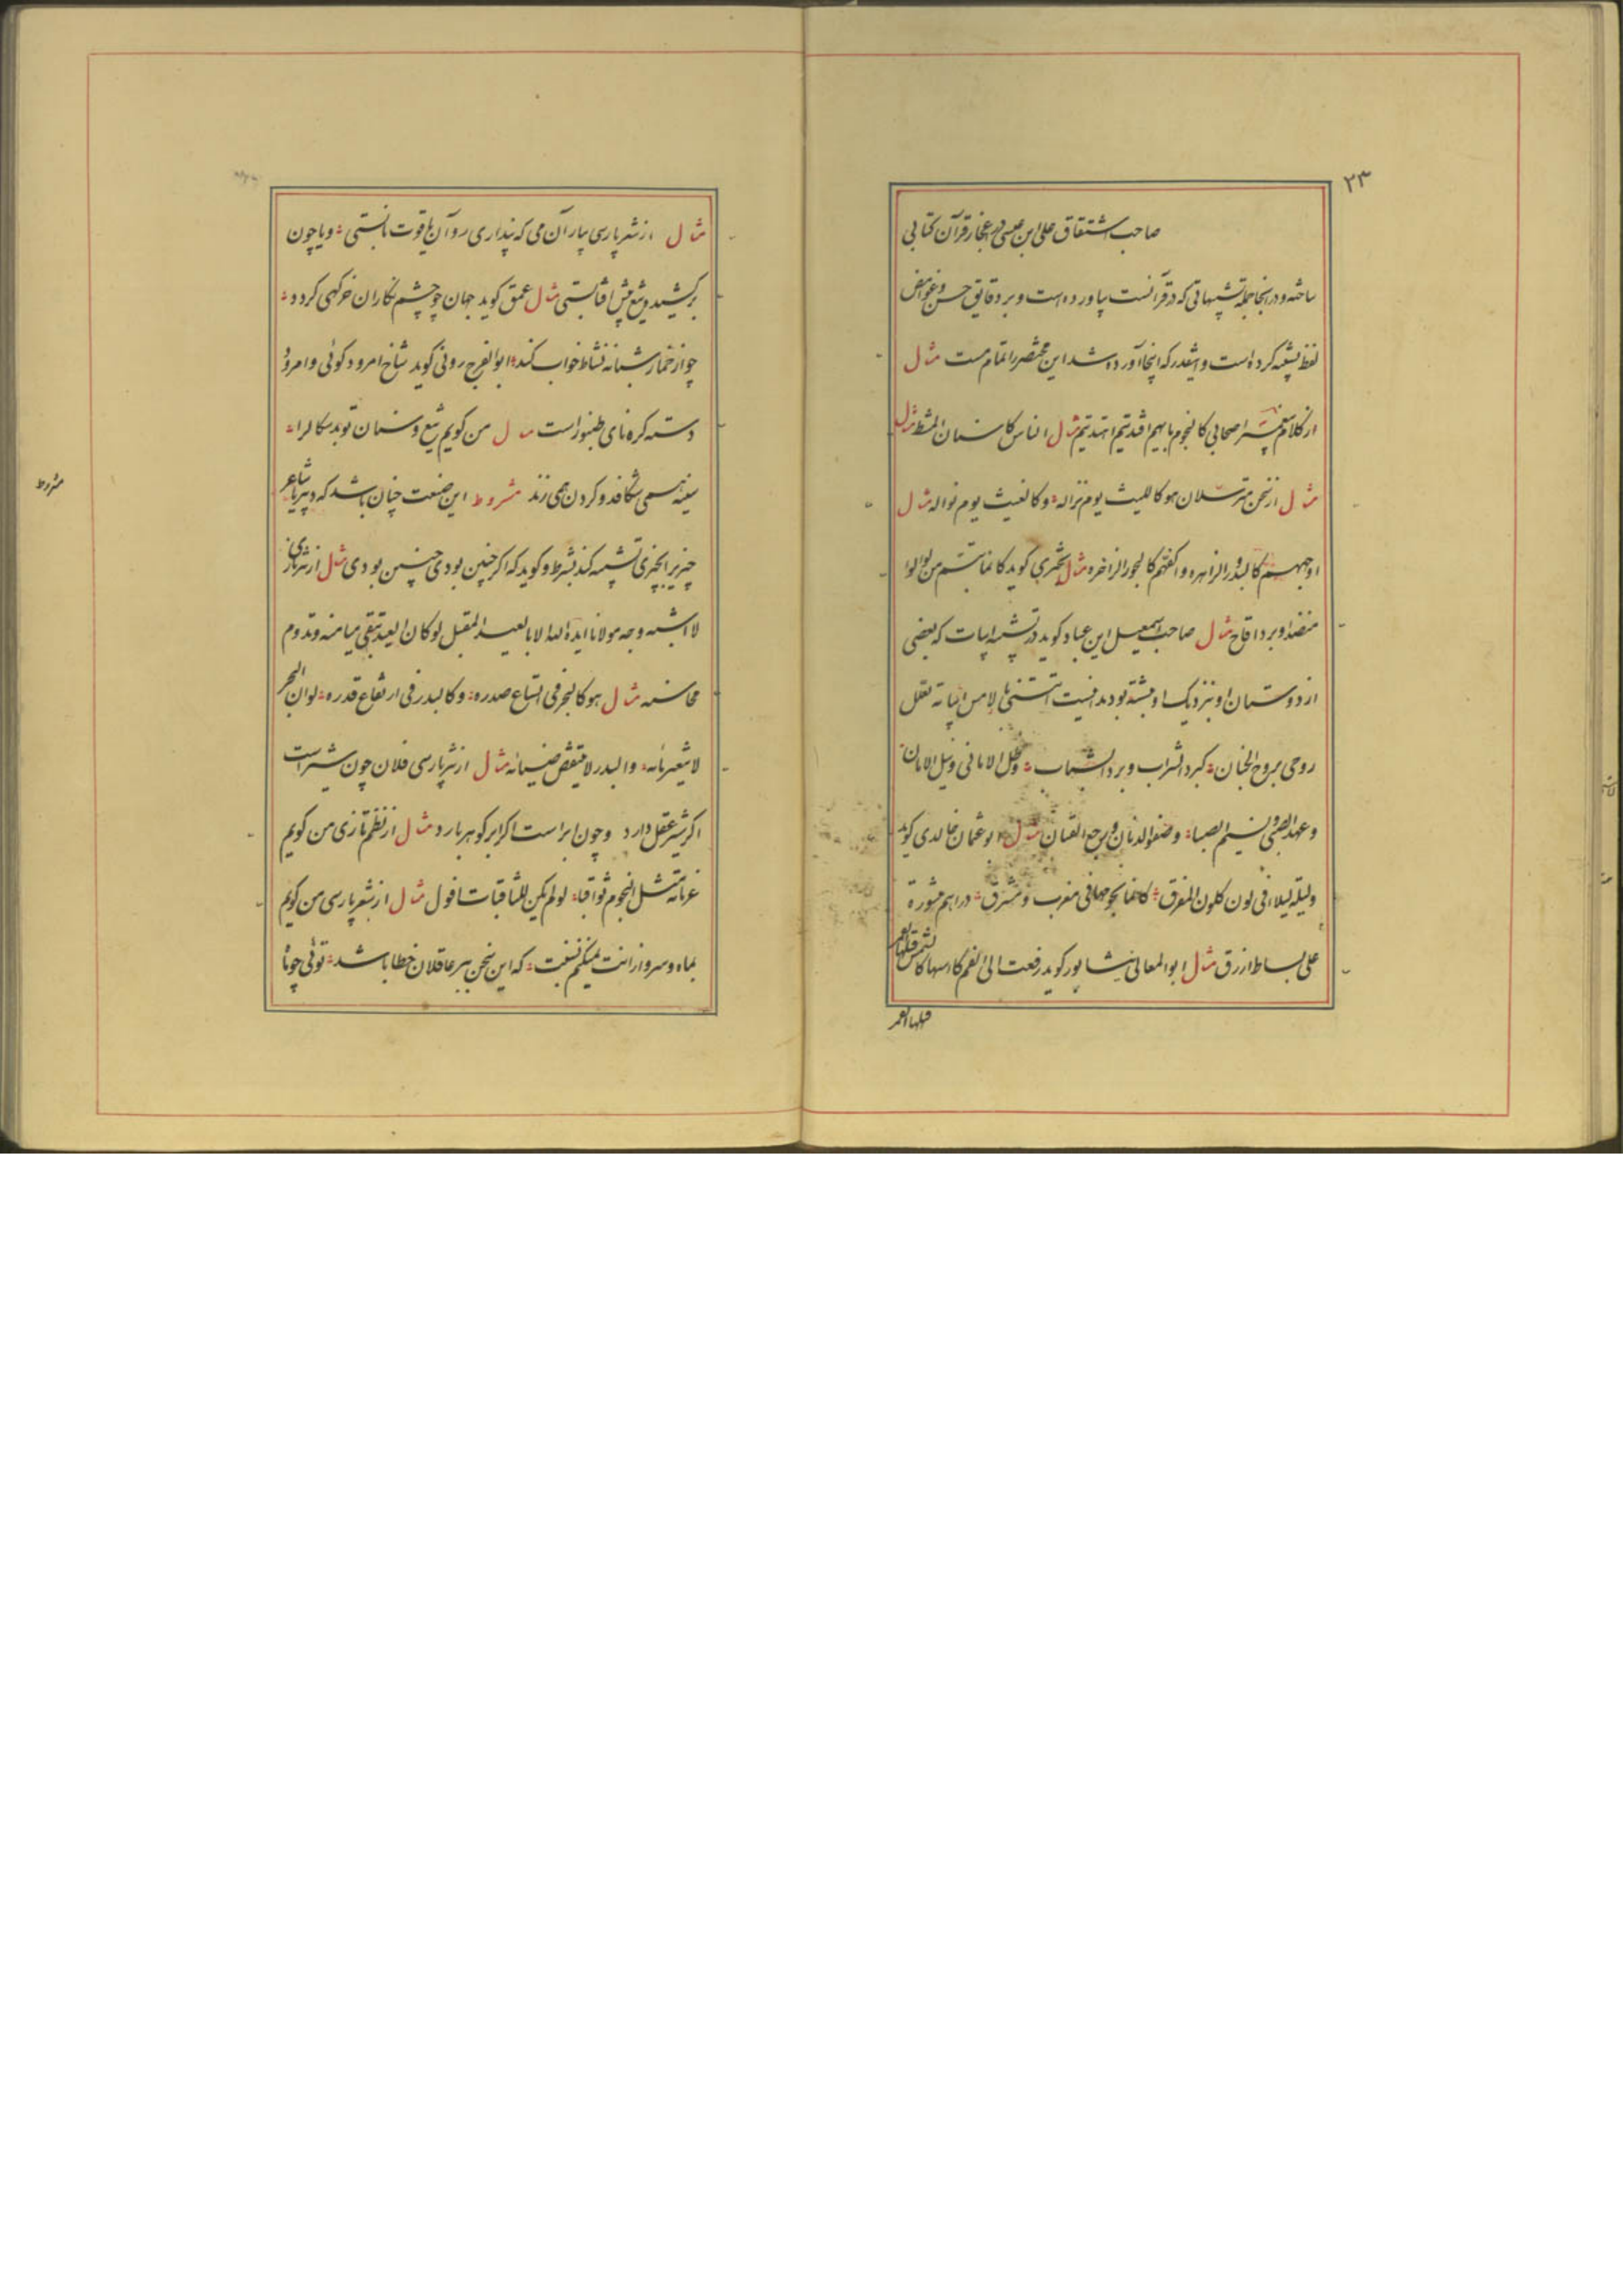 ۲۳
صاحب اشتقاق علی ابن عیسی در اعجاز قرآن کتابی
ساخته و در انجا جمله تشبیهاتی که در قرآنست بیاورده است و بر دقایق حسن و غوامض
لفظ تنبیه کرده است و اینقدر که اینجا آورده شد این مختصر را تمام ست مثال
از کلام پیغمبر اصحابی کالنجوم بایهم اقتدیتم اهتدیتم مثال الناس کاسنان المشط مثال
مثال از سخن مترسلان هو کاللیث یوم نزاله و کالغیث یوم نواله مثال
اوجههم کالبدور الزاهره و اکفهم کالبحور الزاخره مثال بحتری کوید کانما تبسم من لولو
منضد او برد اقاح مثال صاحب اسمعیل ابن عباد کوید در تشبیه ابیات که بعضی
از دوستان او بنزدیک او نبشته بودند اتتنی بالامس ابیاته تعلل
روحی بروح الجنان کبرد الشراب و برد الشباب وظل الامانی ونیل الامان
وعهد الصبی ونسیم الصبا وصفو الدنان ورجع القیان مثال ابو عثمان خالدی کوید
ولیلة لیلاء فی لون کلون المفرق کانما نجومها فی مغرب ومشرق دراهم منثورة
علی بساط ازرق مثال ابو المعالی نیشابور کوید رفعت الی الفم کاسها کالشمس قبلها القمر
قبلها القمر
مثال از شعر پارسی بیار آن می که پنداری روان یاقوت نابستی و یا چون
برکشیده تیغ پیش آفتابستی مثال عمق کوید جهان چو چشم نکاران خرکهی کردد
چو از خمار شبانه نشاط خواب کند ابو الفرج رونی کوید شاخ امرود کوئی و امرود
دسته کره نای طنبوراست مثال من کویم تیغ و سنان تو بدسکالرا
سینه همی شکافد و کردن همی زند مشروط این صنعت چنان باشد که دبیر یا شاعر
چیزی را بچیزی تشبیه کند بشرط و کوید که اکر چنین بودی چنین بودی مثال از نثر تازی
لا اشبه وجه مولانا ایده الله الا بالعید المقبل لو کان العید تبقی میامنه و تدوم
محاسنه مثال هو کالبحر فی اتساع صدره و کالبدر فی ارتفاع قدره لو ان البحر
لا یتغیر ماؤه والبدر لا ینقص ضیاؤه مثال از نثر پارسی فلان چون شیراست
اکر شیر عقل دارد و چون ابر است اکر ابر کوهر بارد مثال از نظم تازی من کویم
عزماته مثل النجوم ثواقبا لو لم یکن للثاقبات افول مثال از شعر پارسی من کویم
بماه و سرو ازانت نمیکنم نسبت که این سخن بر عاقلان خطا باشد توئی چو ماه
مشروط